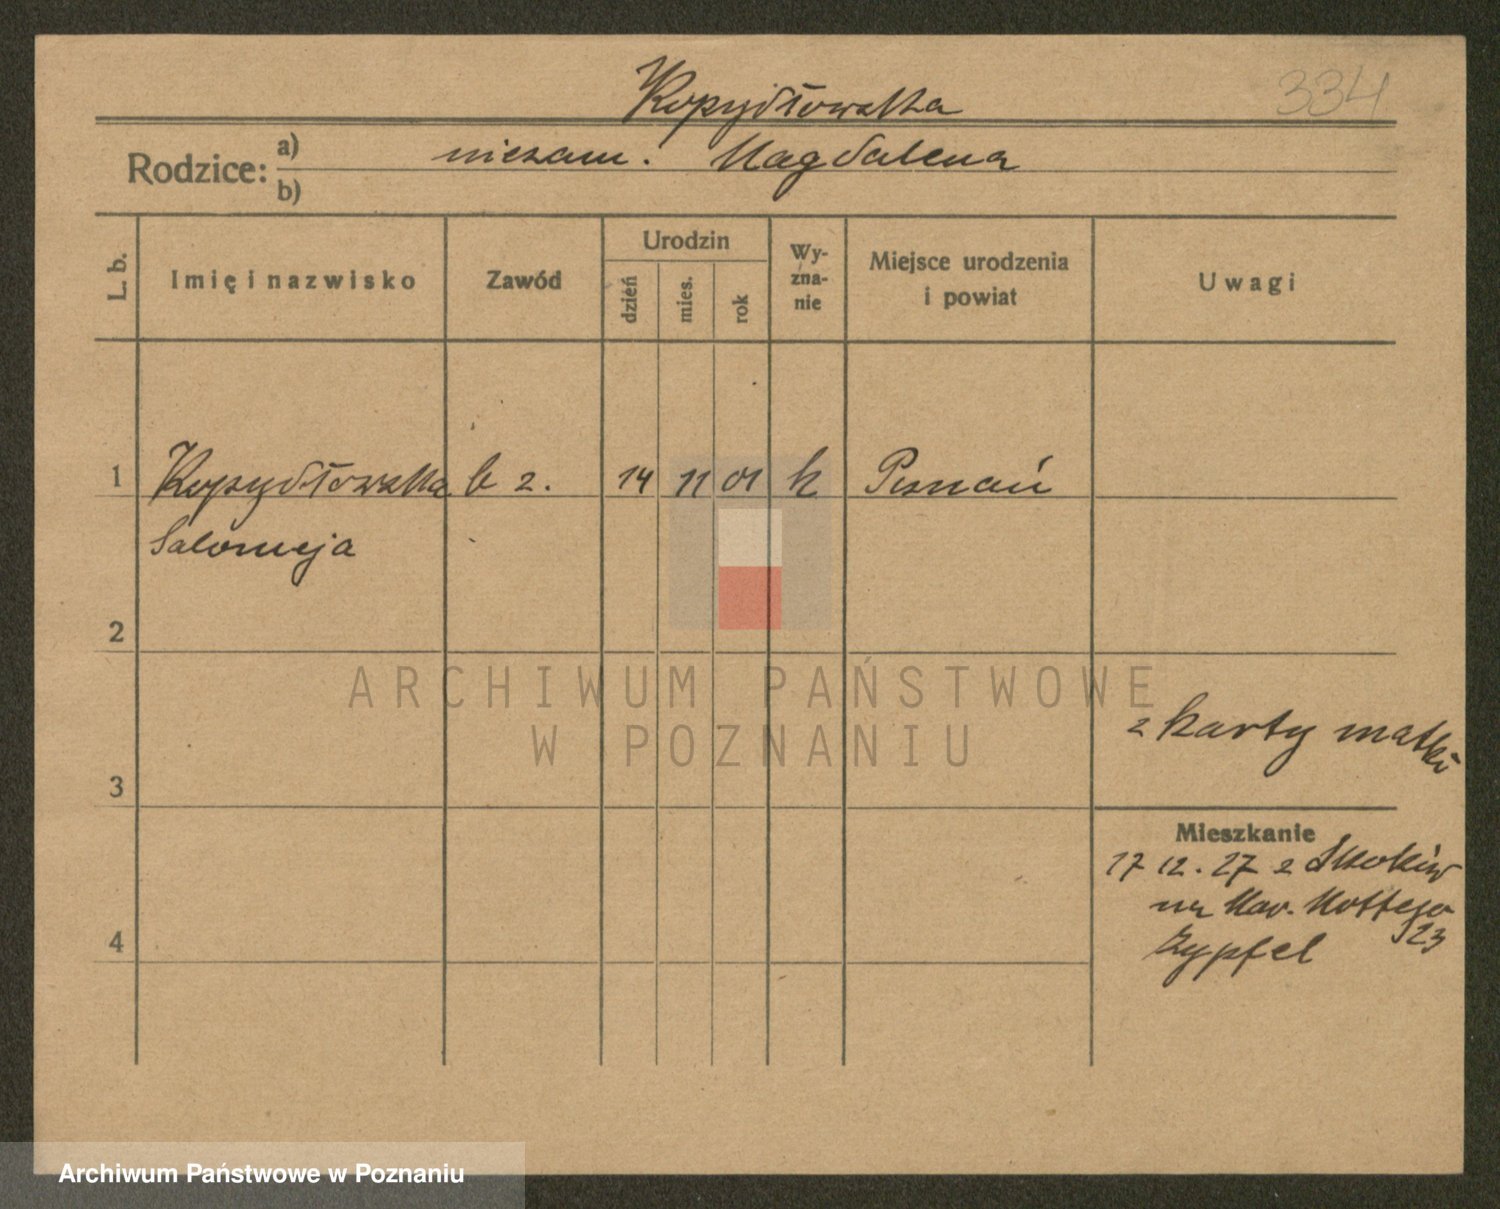 334
Kopydłowska
Rodzice: a) niezam. Magdalena
b)
L. b. Imię i nazwisko Zawód Urodzin dzień mies. rok Wy-zna-nie Miejsce urodzenia i powiat Uwagi
1 Kopydłowska b z. 14 11 01 k Poznań
Salomeja
2
z karty matki
3
Mieszkanie
17 12. 27 z Skoków
na Mar. Mottego
23
4
Zypfel
ARCHIWUM PAŃSTWOWE
W POZNANIU
Archiwum Państwowe w Poznaniu